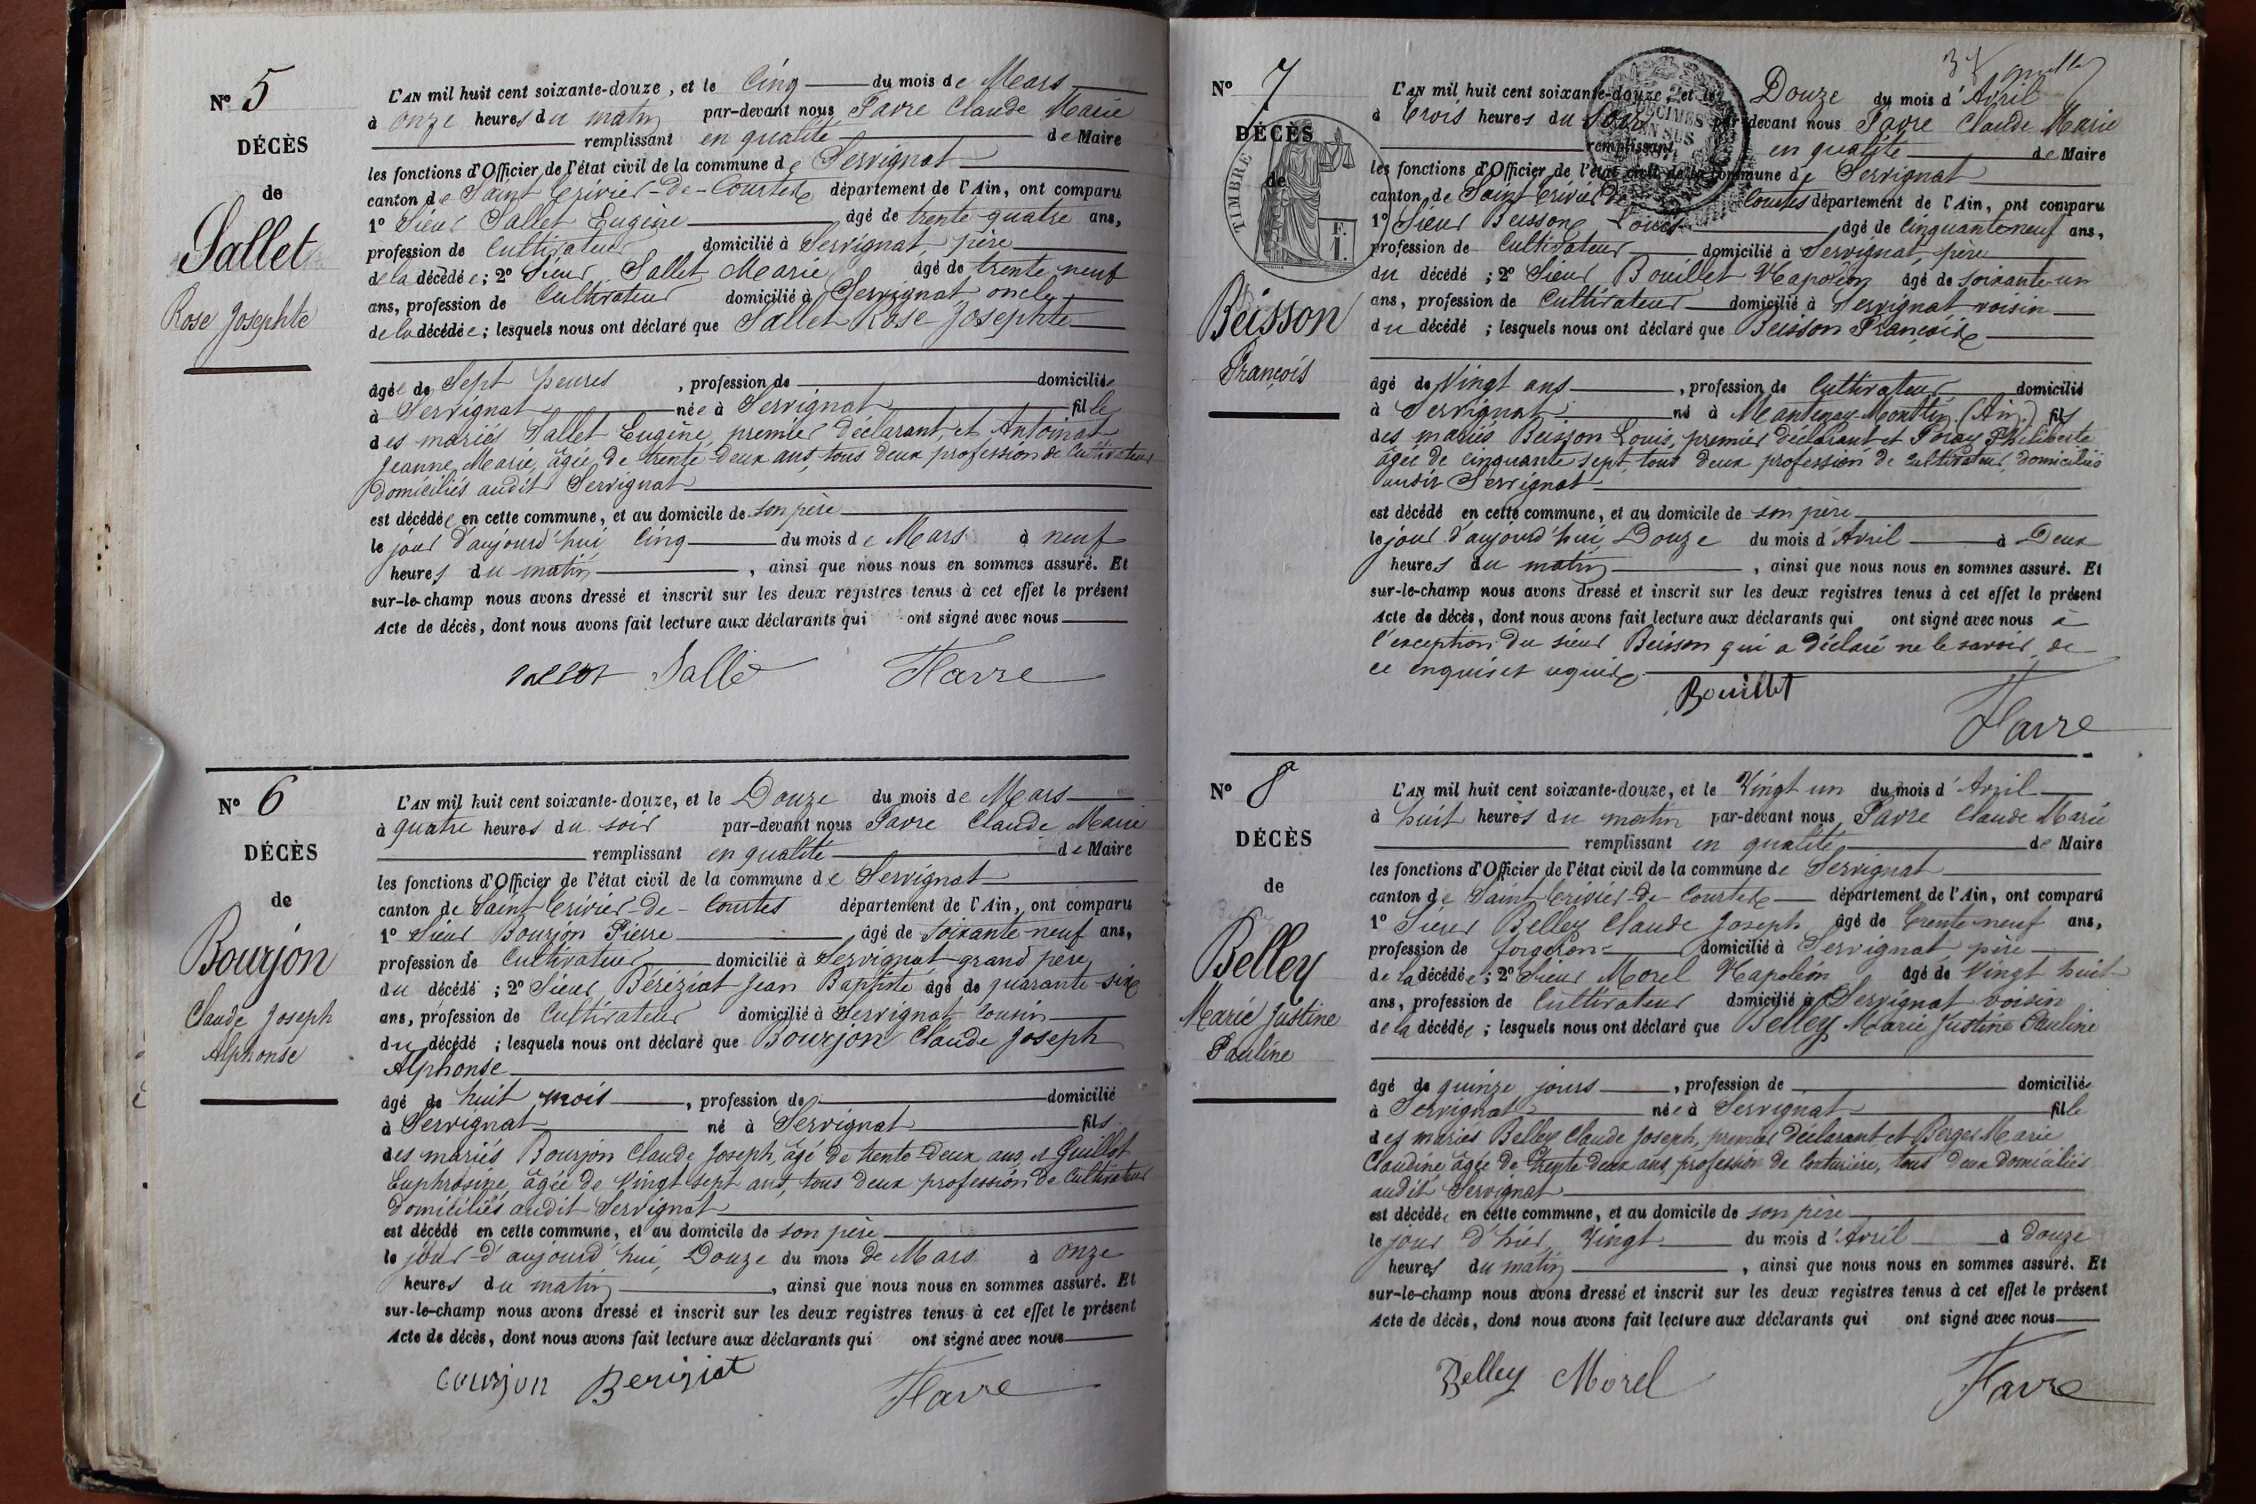 N° 5
DÉCÈS
de
Sallet
Rose Josephte
L'AN mil huit cent soixante-douze, et le Cinq du mois de Mars
à onze heures du matin par-devant nous Favre Claude Marie
remplissant en qualité de Maire
les fonctions d'Officier de l'état civil de la commune de Servignat
canton de Saint Trivier-de-Courtes département de l'Ain, ont comparu
1° Sieur Sallet Eugène âgé de trente-quatre ans,
profession de Cultivateur domicilié à Servignat, père
de la décédée; 2° Sieur Sallet Marie âgé de trente neuf
ans, profession de Cultivateur domicilié à Servignat oncle
de la décédée; lesquels nous ont déclaré que Sallet Rose Josephte
âgée de Sept heures, profession de domiciliée
à Servignat née à Servignat fille
des mariés Sallet Eugène, premier déclarant, et Antoinat
Jeanne Marie, âgée de trente-deux ans, tous deux profession de Cultivateur
domiciliés audit Servignat
est décédée en cette commune, et au domicile de son père
le jour d'aujourd'hui Cinq du mois de Mars à neuf
heures du matin, ainsi que nous nous en sommes assuré. Et
sur-le-champ nous avons dressé et inscrit sur les deux registres tenus à cet effet le présent
Acte de décès, dont nous avons fait lecture aux déclarants qui ont signé avec nous
Salle Favre
N° 6
DÉCÈS
de
Bourjon
Claude Joseph
Alphonse
L'AN mil huit cent soixante-douze, et le Douze du mois de Mars
à quatre heures du soir par-devant nous Favre Claude Marie
remplissant en qualité de Maire
les fonctions d'Officier de l'état civil de la commune de Servignat
canton de Saint Trivier-de-Courtes département de l'Ain, ont comparu
1° Sieur Bourjon Pierre âgé de soixante-neuf ans,
profession de Cultivateur domicilié à Servignat grand père
du décédé; 2° Sieur Béréziat Jean Baptiste âgé de quarante-six
ans, profession de Cultivateur domicilié à Servignat, cousin
du décédé; lesquels nous ont déclaré que Bourjon Claude Joseph
Alphonse
âgé de huit mois, profession de domicilié
à Servignat né à Servignat fils
des mariés Bourjon Claude Joseph, âgé de trente-deux ans et Guillot
Euphrosine, âgée de Vingt sept ans, tous deux profession de Cultivateur
domiciliés audit Servignat
est décédé en cette commune, et au domicile de son père
le jour d'aujourd'hui, Douze du mois de Mars à onze
heures du matin, ainsi que nous nous en sommes assuré. Et
sur-le-champ nous avons dressé et inscrit sur les deux registres tenus à cet effet le présent
Acte de décès, dont nous avons fait lecture aux déclarants qui ont signé avec nous
Bourjon Beriziat Favre
N° 7
DÉCÈS
de
TIMBRE
F.
1.
Beisson
François
L'AN mil huit cent soixante-douze, et le Douze du mois d'Avril
à Trois heures du soir par-devant nous Favre Claude Marie
remplissant en qualité de Maire
les fonctions d'Officier de l'état civil de la commune de Servignat
canton de Saint Trivier de Courtes département de l'Ain, ont comparu
1° Sieur Beisson Louis âgé de cinquante neuf ans,
profession de Cultivateur domicilié à Servignat, père
du décédé; 2° Sieur Bouillet Napoléon âgé de soixante un
ans, profession de Cultivateur domicilié à Servignat voisin
du décédé; lesquels nous ont déclaré que Beisson François
âgé de Vingt ans, profession de Cultivateur domicilié
à Servignat né à Mantenay-Montlin (Ain) fils
des mariés Beisson Louis, premier déclarant et Poray Philiberte
âgée de cinquante sept, tous deux profession de Cultivateur, domiciliés
audit Servignat
est décédé en cette commune, et au domicile de son père
le jour d'aujourd'hui Douze du mois d'Avril à Deux
heures du matin, ainsi que nous nous en sommes assuré. Et
sur-le-champ nous avons dressé et inscrit sur les deux registres tenus à cet effet le présent
Acte de décès, dont nous avons fait lecture aux déclarants qui ont signé avec nous à
l'exception du sieur Beisson qui a déclaré ne le savoir, de
ce enquis et requis
Bouillet
Favre
N° 8
DÉCÈS
de
Belley
Marie Justine
Pauline
L'AN mil huit cent soixante-douze, et le Vingt un du mois d'Avril
à huit heures du matin par-devant nous Favre Claude Marie
remplissant en qualité de Maire
les fonctions d'Officier de l'état civil de la commune de Servignat
canton de Saint Trivier-de-Courtes département de l'Ain, ont comparu
1° Sieur Belley Claude Joseph âgé de Trente-neuf ans,
profession de forgeron domicilié à Servignat, père
de la décédée; 2° Sieur Morel Napoléon âgé de Vingt huit
ans, profession de Cultivateur domicilié à Servignat voisin
de la décédée; lesquels nous ont déclaré que Belley Marie Justine Pauline
âgé de quinze jours, profession de domiciliée
à Servignat née à Servignat fille
des mariés Belley Claude Joseph, premier déclarant et Berger Marie
Claudine, âgée de Trente deux ans, profession de Couturière, tous deux domiciliés
audit Servignat
est décédée en cette commune, et au domicile de son père
le jour d'hier Vingt du mois d'Avril à douze
heures du matin, ainsi que nous nous en sommes assuré. Et
sur-le-champ nous avons dressé et inscrit sur les deux registres tenus à cet effet le présent
Acte de décès, dont nous avons fait lecture aux déclarants qui ont signé avec nous
Belley Morel Favre